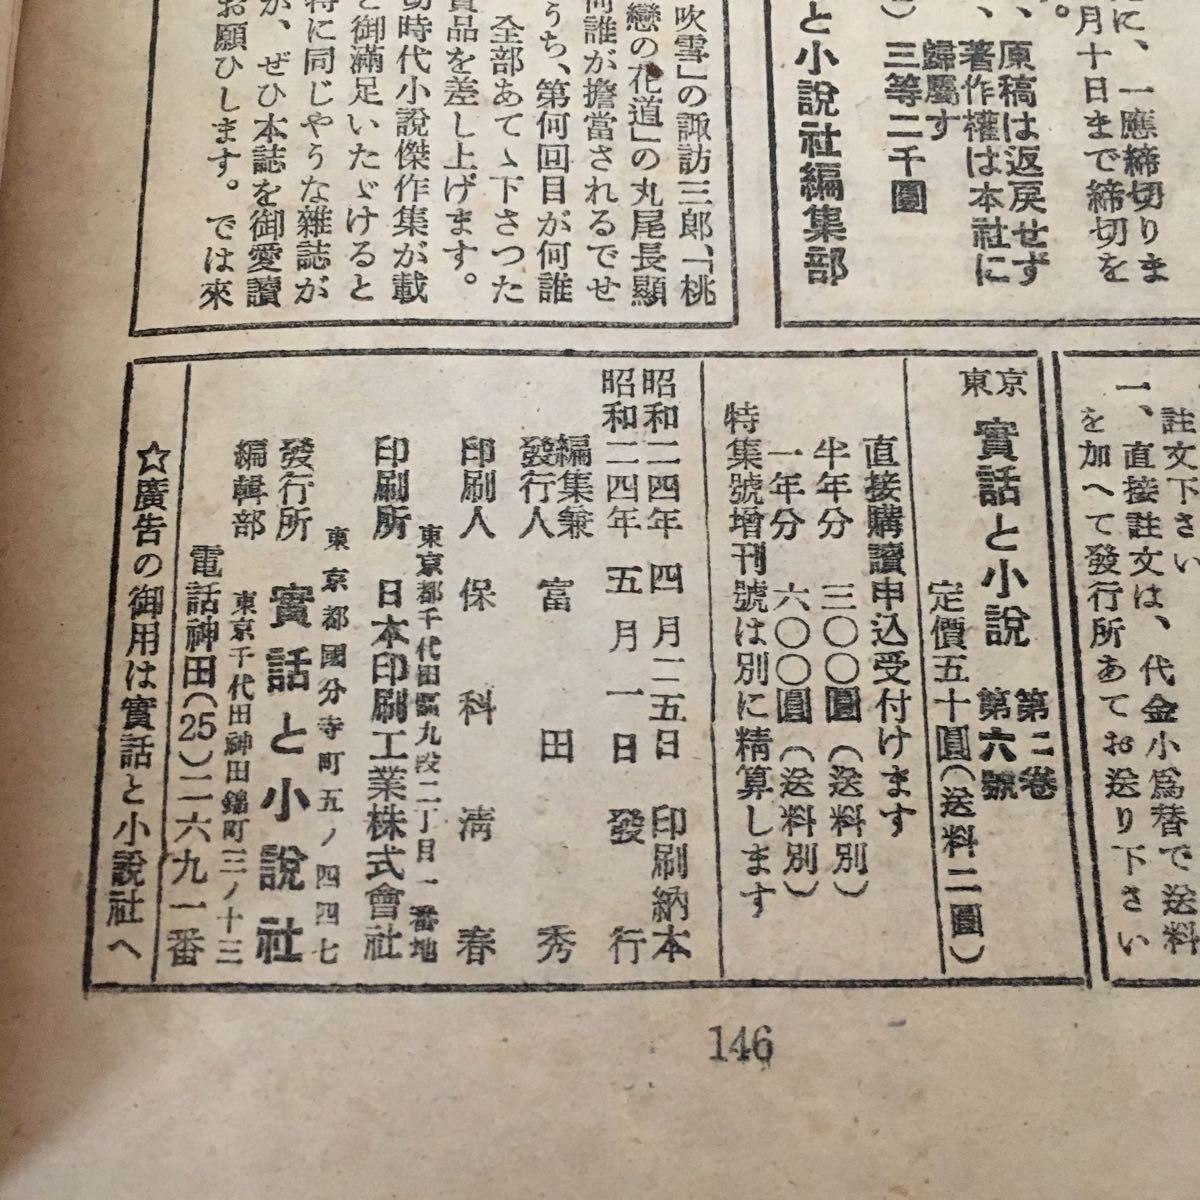 に、一應締切りま
月十日まで締切を
。
、原稿は返戻せず
、著作權は本社に
歸屬す
三等二千圓
と小說社編集部
吹雪」の諏訪三郎、「桃
戀の花道」の丸尾長顯
何誰が擔當されるでせ
うち、第何回目が何誰
全部あてゝ下さつた
賞品を差し上げます。
切時代小說傑作集が載
と御滿足いたゞけると
特に同じやうな雜誌が
が、ぜひ本誌を御愛讀
お願ひします。では來
註文下さい
一、直接註文は、代金小爲替で送料
を加へて發行所あてお送り下さい
東京 實話と小說 第二卷 第六號
定價五十圓(送料二圓)
直接購讀申込受付けます
半年分 三〇〇圓(送料別)
一年分 六〇〇圓(送料別)
特集號增刊號は別に精算します
昭和二四年四月二五日 印刷納本
昭和二四年五月一日發行
編集兼發行人 富田秀
印刷人 保科淸春
東京都千代田區九段二丁目一番地
印刷所 日本印刷工業株式會社
東京都國分寺町五ノ四四七
發行所 實話と小說社
編輯部 東京千代田神田錦町三ノ十三
電話神田(25)二六九一番
☆廣告の御用は實話と小說社へ
146